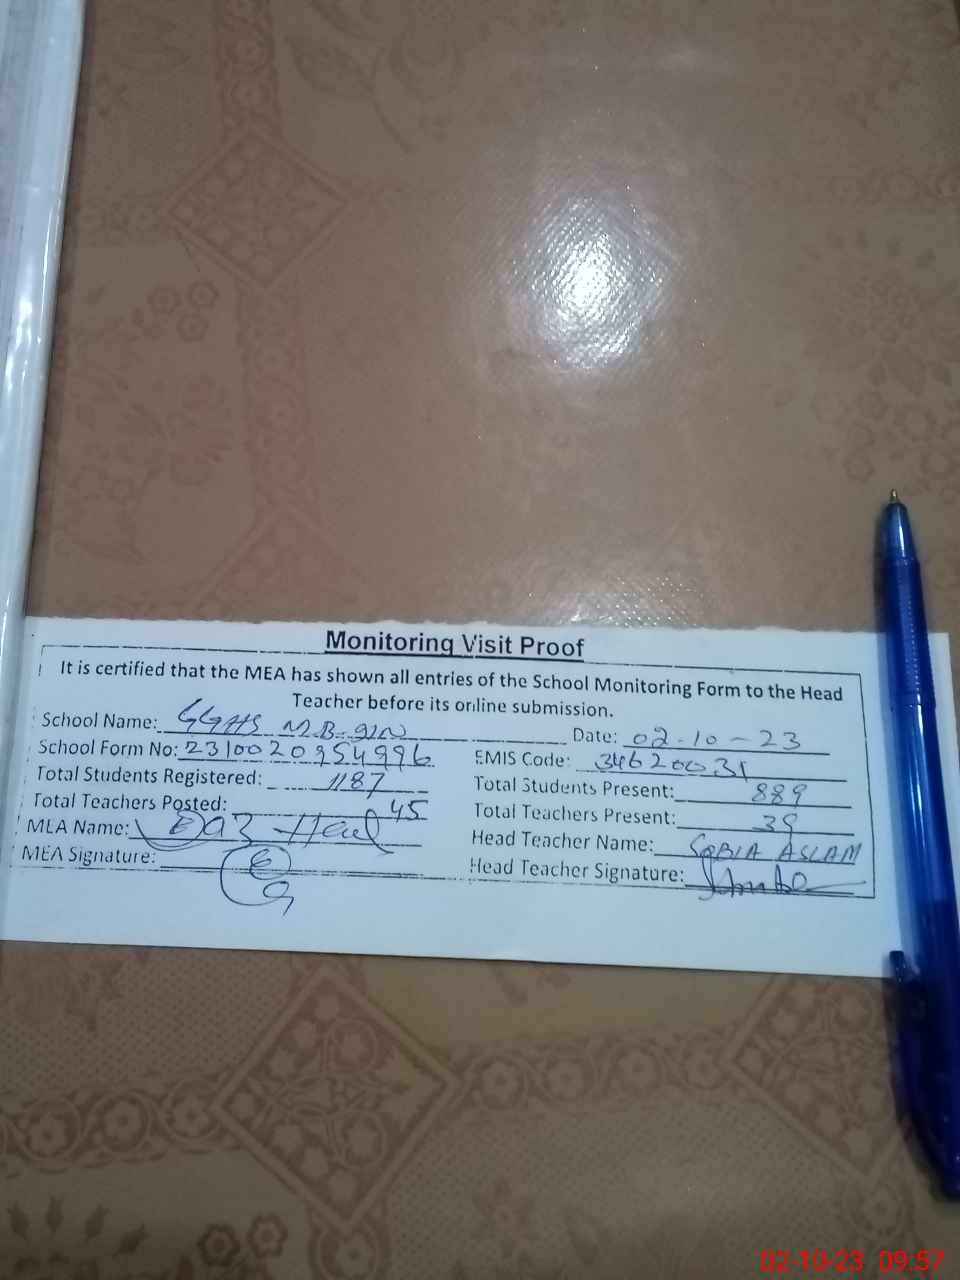 Monitoring Visit Proof
It is certified that the MEA has shown all entries of the School Monitoring Form to the Head
Teacher before its online submission.
School Name: GGHS M.B. Date: 02-10-23
School Form No: 2310020954996 EMIS Code: 34620031
Total Students Registered: 1187 Total Students Present: 889
Total Teachers Posted: 45 Total Teachers Present: 39
MEA Name: Head Teacher Name: SOBIA ASLAM
MEA Signature: Head Teacher Signature:
02-10-23 09:57